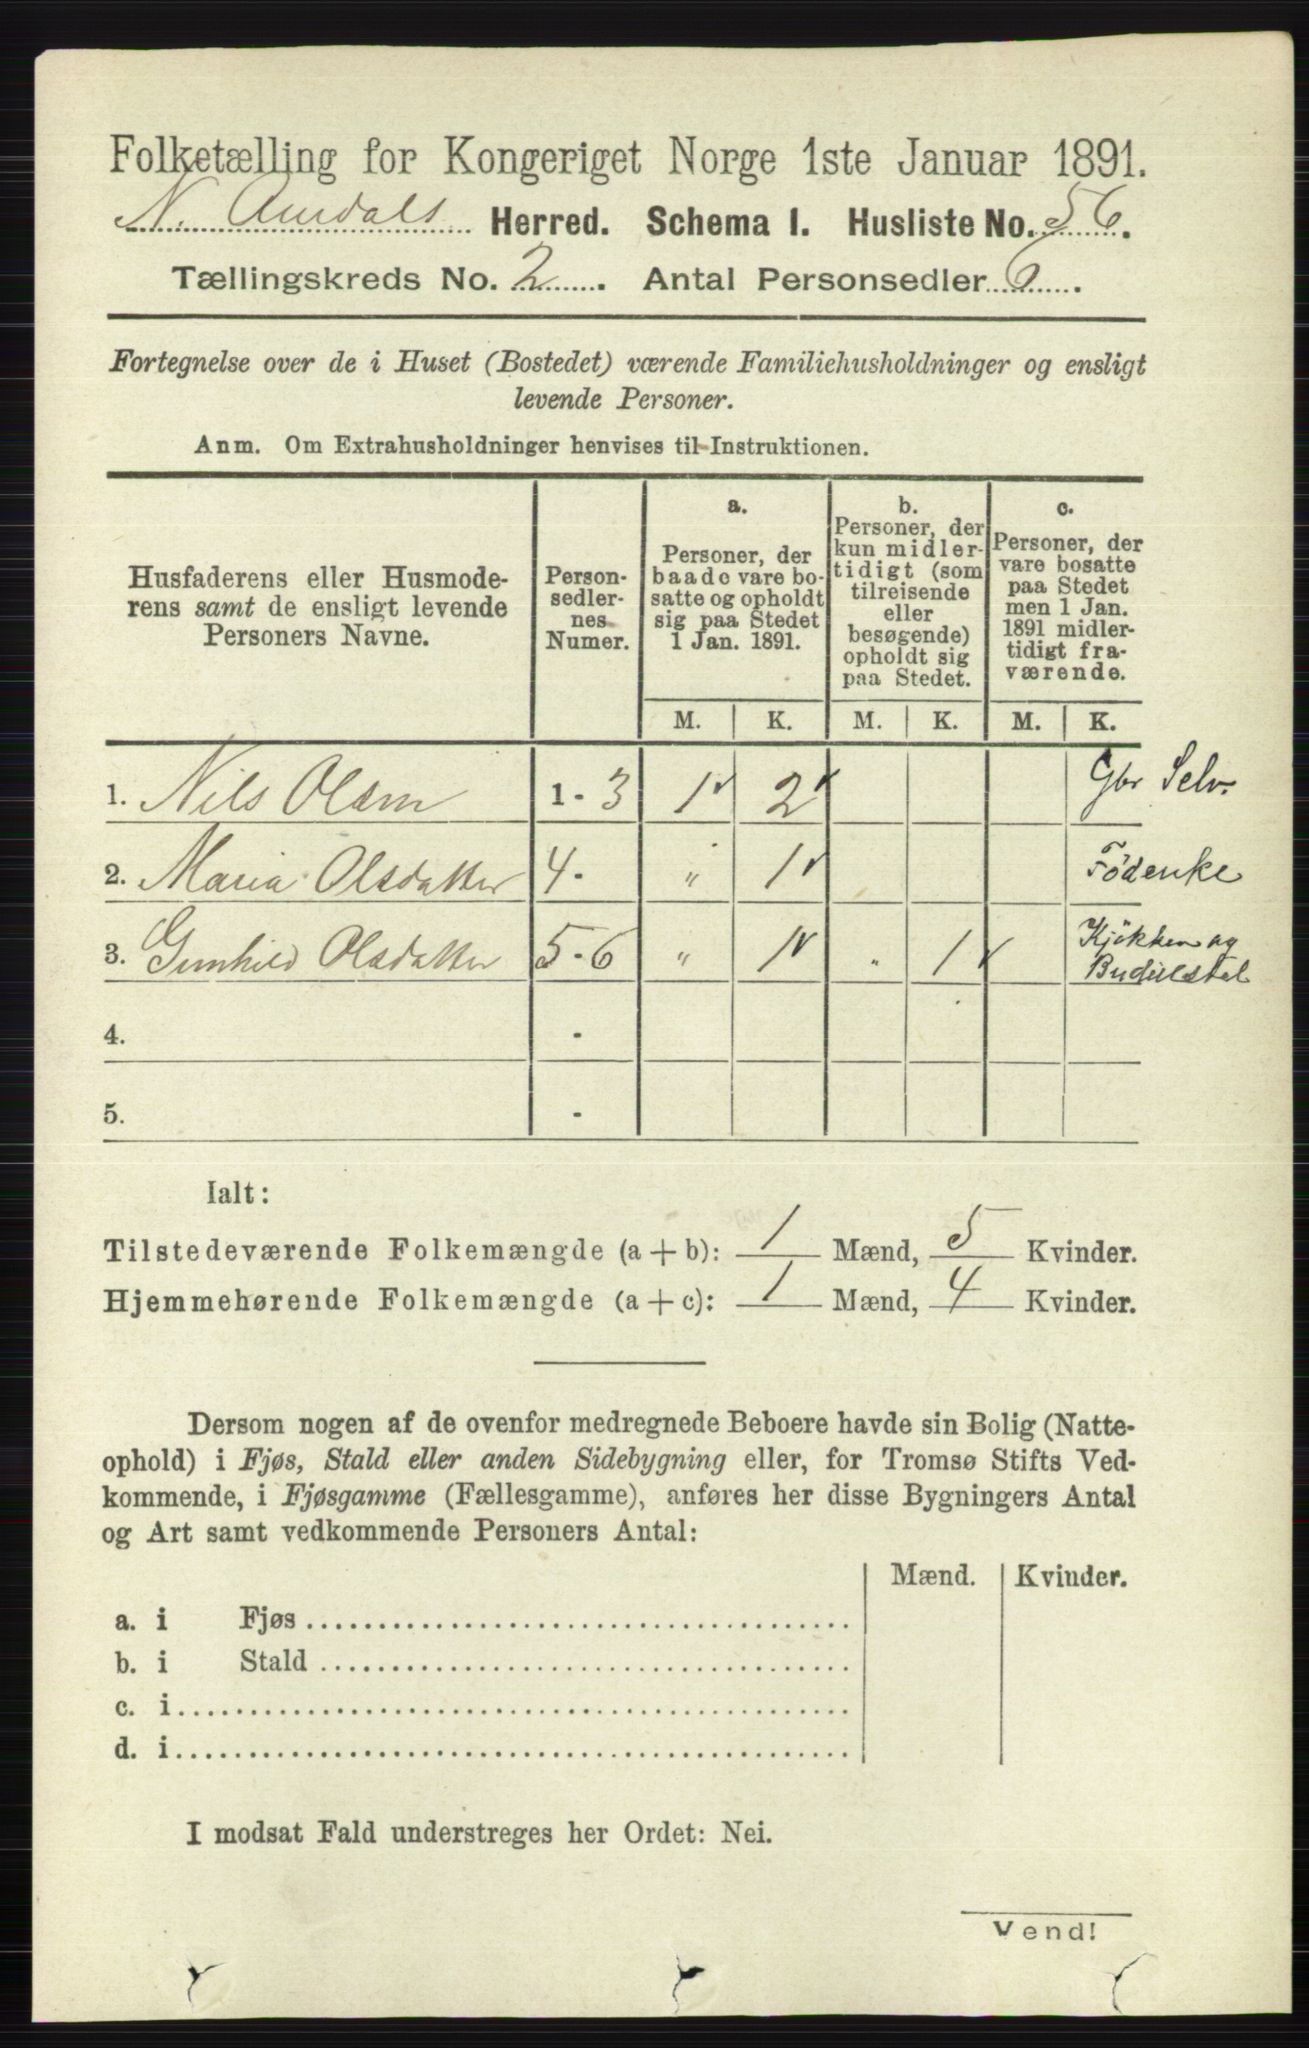 Folketælling for Kongeriget Norge 1ste Januar 1891.
N. Aurdals Herred. Schema I. Husliste No. 56.
Tællingskreds No. 2. Antal Personsedler 6.
Fortegnelse over de i Huset (Bostedet) værende Familiehusholdninger og ensligt
levende Personer.
Anm. Om Extrahusholdninger henvises til Instruktionen.
Husfaderens eller Husmode-
rens samt de ensligt levende
Personers Navne.
Person-
sedler-
nes
Numer.
a.
Personer, der
baade vare bo-
satte og opholdt
sig paa Stedet
1 Jan. 1891.
b.
Personer, der
kun midler-
tidigt (som
tilreisende
eller
besøgende)
opholdt sig
paa Stedet.
c.
Personer, der
vare bosatte
paa Stedet
men 1 Jan.
1891 midler-
tidigt fra-
værende.
M. K. M. K. M. K.
1. Nils Olsen 1 - 3 1 2 Gbr Selv.
2. Maria Olsdatter 4 - " 1 Födenke
3. Gunhild Olsdatter 5 - 6 " 1 " 1 Kjökken og
4. -
5. -
Ialt:
Tilstedeværende Folkemængde (a + b): 1 Mænd, 5 Kvinder.
Hjemmehørende Folkemængde (a + c): 1 Mænd, 4 Kvinder.
Dersom nogen af de ovenfor medregnede Beboere havde sin Bolig (Natte-
ophold) i Fjøs, Stald eller anden Sidebygning eller, for Tromsø Stifts Ved-
kommende, i Fjøsgamme (Fællesgamme), anføres her disse Bygningers Antal
og Art samt vedkommende Personers Antal:
Mænd. Kvinder.
a. i Fjøs
b. i Stald
c. i
d. i
I modsat Fald understreges her Ordet: Nei.
Vend!